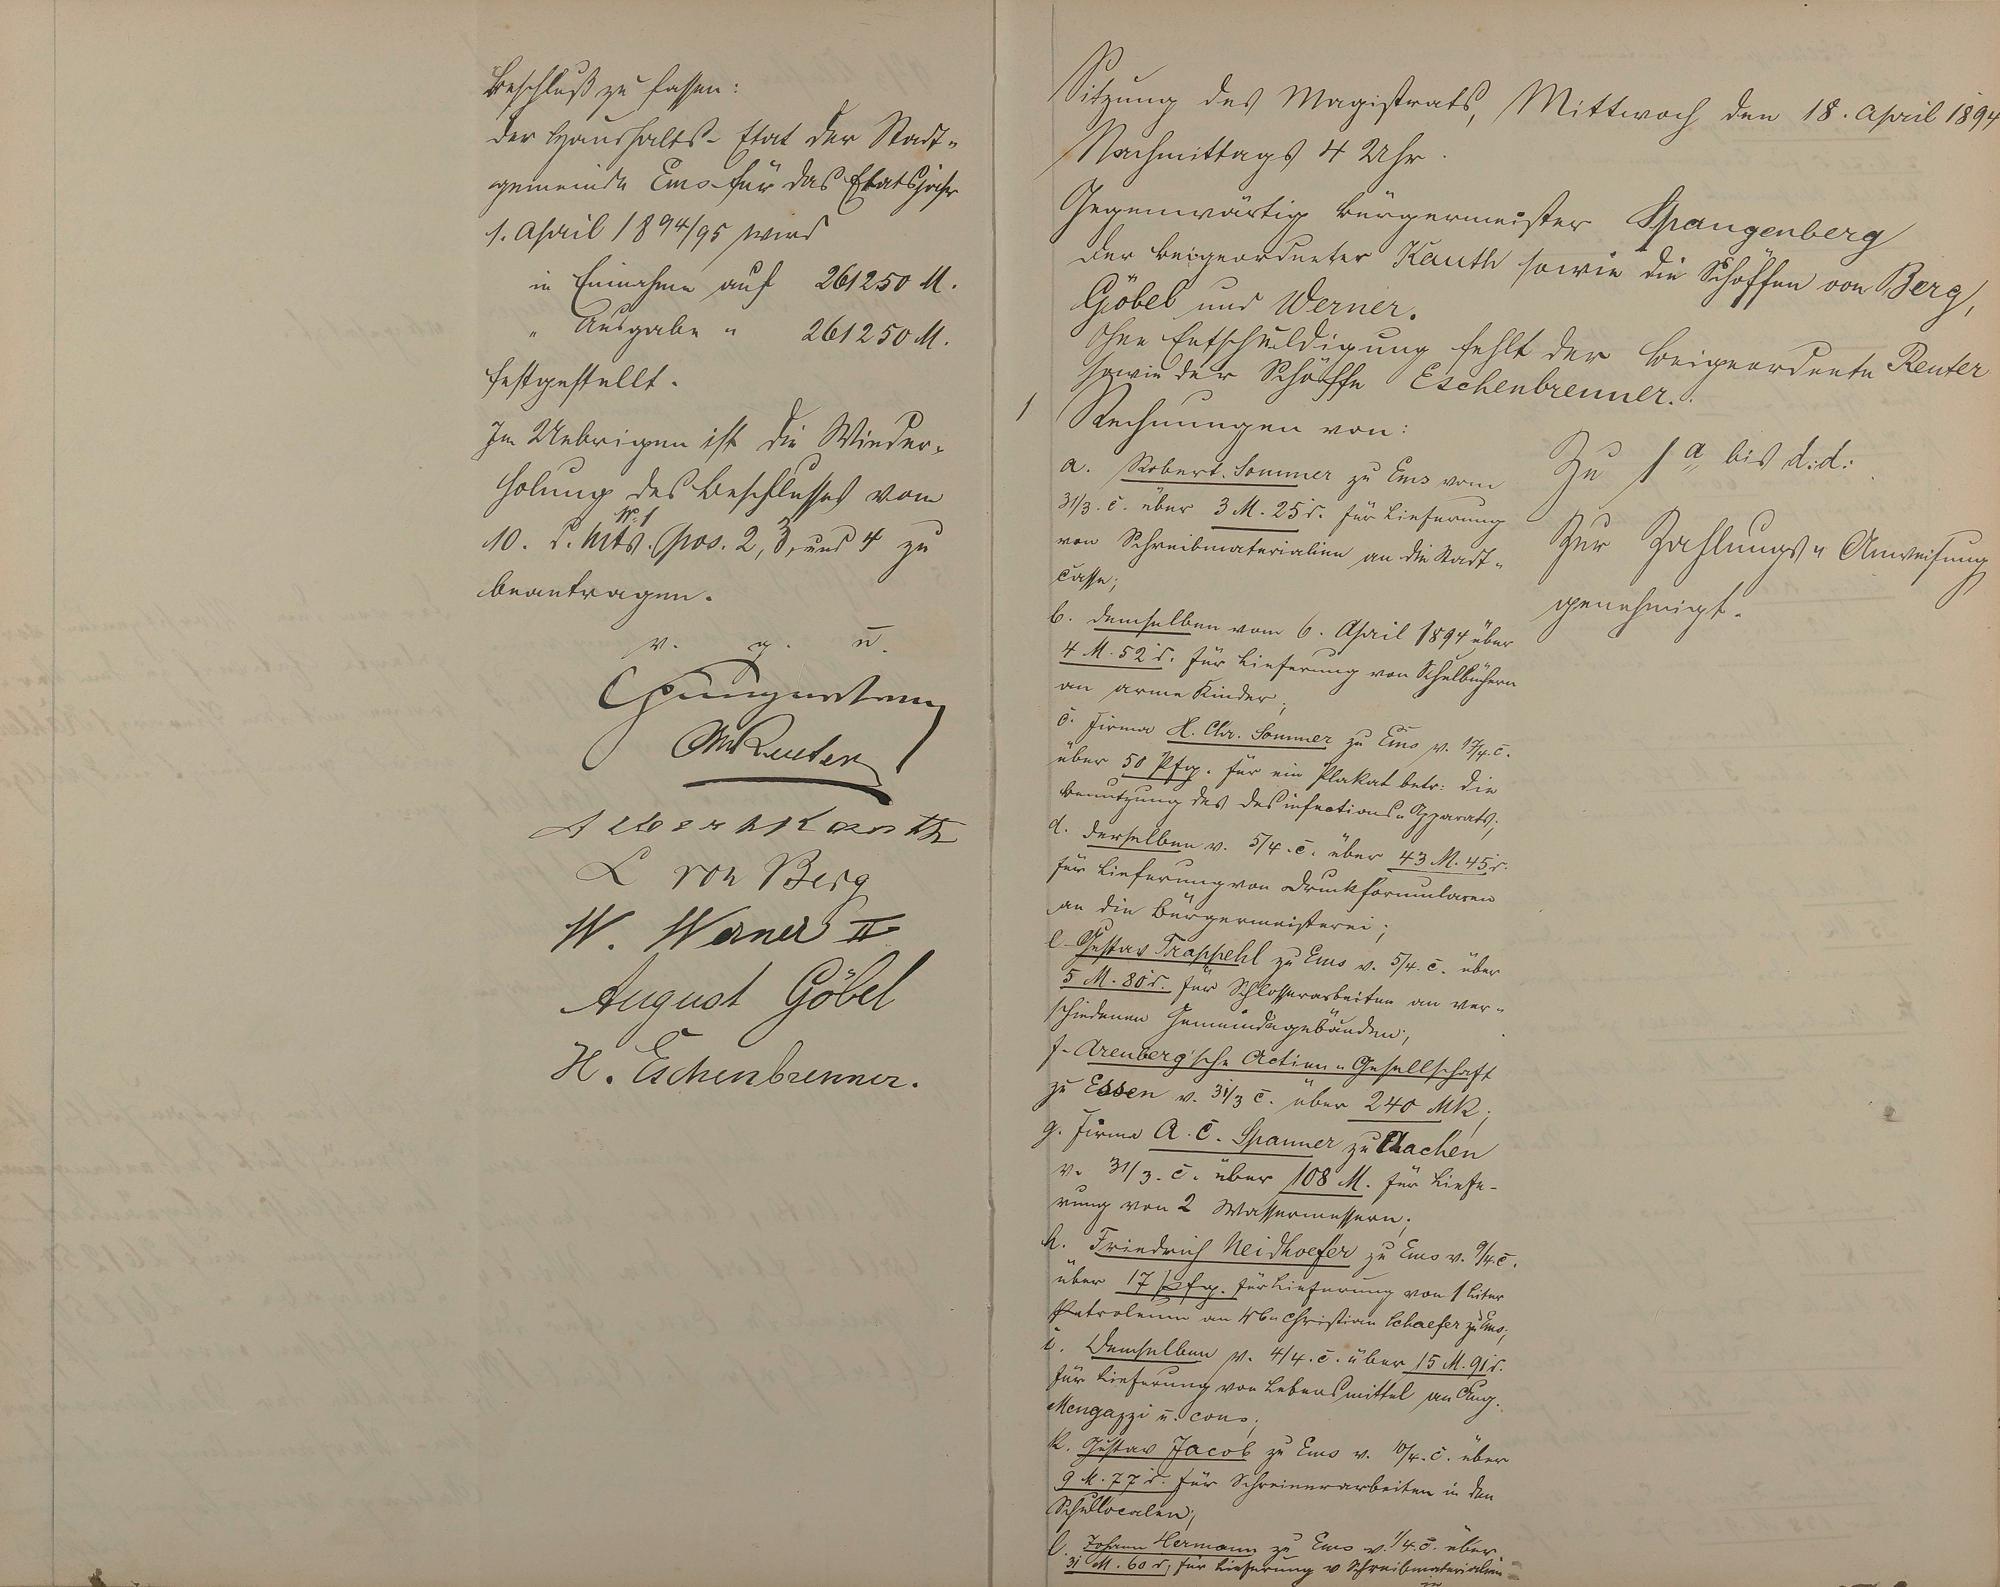 Beschluß zu fassen:
Der Haushalts-Etat der Stadt-
gemeinde Ems für das Etatsjahr
1. April 1894/95 wird
in Einnahme auf 261250 M.
" Ausgabe " 261250 M.
festgestellt.
Im Uebrigen ist die Wieder-
holung des Beschlusses vom
10. d. Mts. No. 1 pos. 2, 3, und 4 zu
beantragen.
v. g. u.
Spangenberg
Reuter
Albert Kauth
L von Berg
W. Werner II
August Göbel
H. Eschenbrenner.
Sitzung des Magistrats, Mittwoch den 18. April 1894
Nachmittags 4 Uhr.
Gegenwärtig Bürgermeister Spangenberg
der Beigeordneter Kauth sowie die Schöffen von Berg,
Göbel und Werner.
Ohne Entschuldigung fehlt der Beigeordnete Reuter
sowie der Schöffe Eschenbrenner.
1 Rechnungen von:
a. Robert Sommer zu Ems vom
31/3. c. über 3 M. 25 d. für Lieferung
von Schreibmaterialien an die Stadt-
casse;
b. demselben vom 6. April 1894 über
4 M. 52 d. für Lieferung von Schulbüchern
an arme Kinder;
c. Firma H. Chr. Sommer zu Ems v. 17/4. c.
über 50 Pfg. für ein Plakat betr: die
Benutzung des Desinfections-Apparats;
d. derselben v. 5/4. c. über 43 M. 45 d.
für Lieferung von Druckformularen
an die Bürgermeisterei;
e. Gustav Trappehl zu Ems v. 5/4. c. über
5 M. 80 d. für Schlosserarbeiten an ver-
schiedenen Gemeindegebäuden;
f. Arenberg'sche Actien-Gesellschaft
zu Essen v. 31/3 c. über 240 Mk;
g. Firma A. C. Spanner zu Aachen
v. 31/3. c. über 108 M. für Liefe-
rung von 2 Wassermessern;
h. Friedrich Neidhoefer zu Ems v. 9/4. c.
über 17 Pfg. für Lieferung von 1 Liter
Petroleum an Christian Schaefer zu Ems;
i. Demselben v. 4/4. c. über 15 M. 91 d.
für Lieferung von Lebensmittel an Aug.
Mengazzi u. cons;
k. Gustav Jacob zu Ems v. 10/4. c. über
9 M. 77 d. für Schreinerarbeiten in den
Schullocalen;
l. Johann Hermann zu Ems v. 1/4. c. über
31 M. 60 d, für Lieferung v Schreibmaterialien
Zu 1 a bis d.d.
Zur Zahlungs-Anweisung
genehmigt.